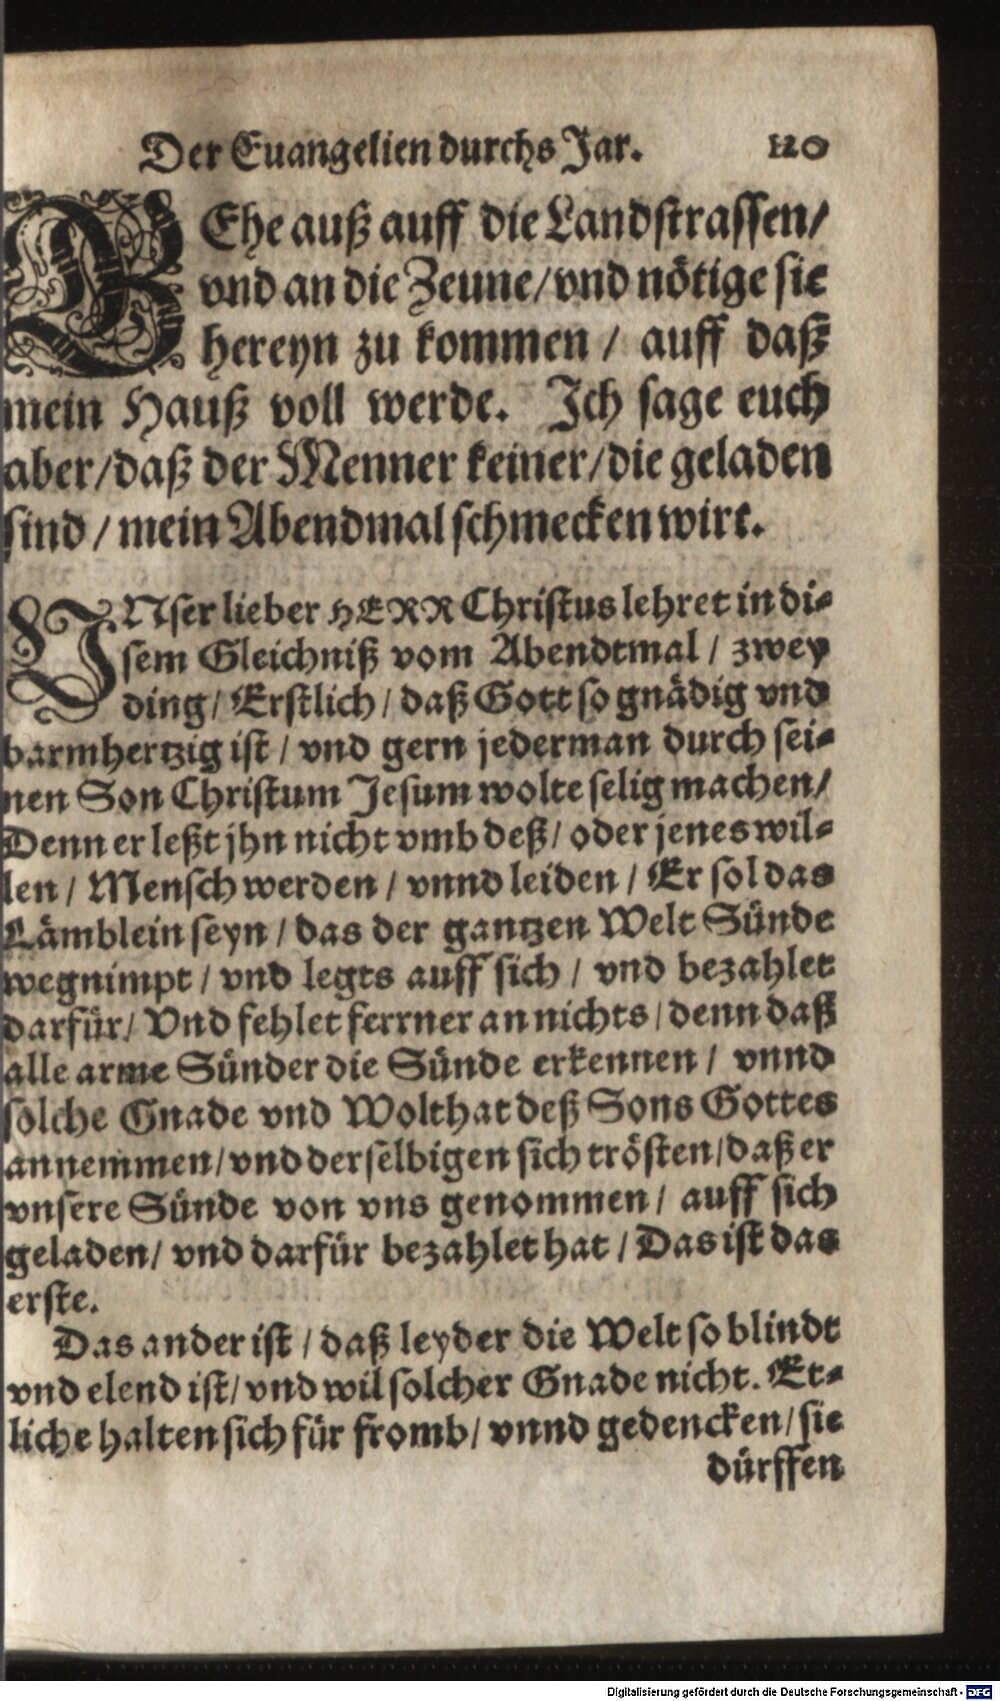 Der Euangelien durchs Jar. 120
GEhe auß auff die Landstrassen/
vnd an die Zeune/vnd nötige sie
hereyn zu kommen / auff daß
mein Hauß voll werde. Ich sage euch
aber/daß der Menner keiner/die geladen
sind / mein Abendmal schmecken wirt.
VNser lieber HERR Christus lehret in di-
sem Gleichniß vom Abendtmal / zwey
ding/ Erstlich / daß Gott so gnädig vnd
barmhertzig ist / vnd gern jederman durch sei-
nen Son Christum Jesum wolte selig machen/
Denn er leßt jhn nicht vmb deß/ oder jenes wil-
len / Mensch werden / vnnd leiden / Er sol das
Lämblein seyn / das der gantzen Welt Sünde
wegnimpt / vnd legts auff sich / vnd bezahlet
darfür/ Vnd fehlet ferrner an nichts / denn daß
alle arme Sünder die Sünde erkennen / vnnd
solche Gnade vnd Wolthat deß Sons Gottes
annemmen/vnd derselbigen sich trösten/daß er
vnsere Sünde von vns genommen / auff sich
geladen/ vnd darfür bezahlet hat / Das ist das
erste.
Das ander ist / daß leyder die Welt so blindt
vnd elend ist/ vnd wil solcher Gnade nicht. Et-
liche halten sich für fromb/ vnnd gedencken/ sie
dürffen
Digitalisierung gefördert durch die Deutsche Forschungsgemeinschaft - DFG